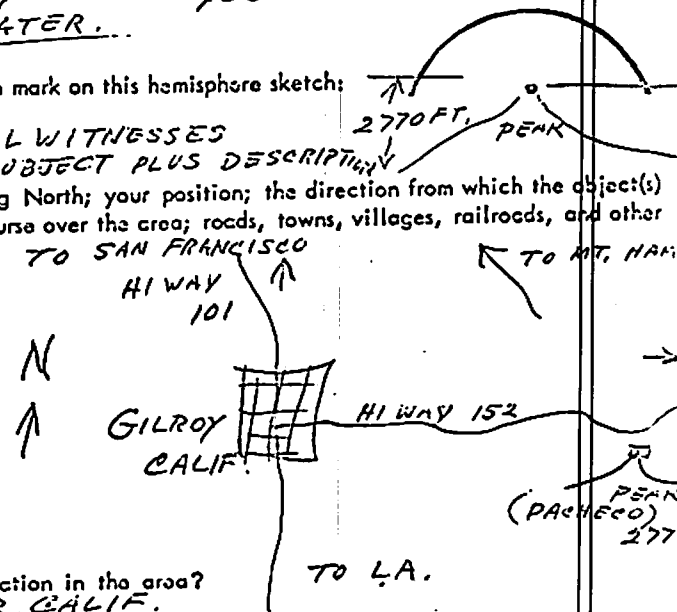 TER.
mark on this hemisphere sketch:
2770 FT.
PEAK
L WITNESSES
OBJECT PLUS DESCRIPTION
g North; your position; the direction from which the object(s)
urse over the area; roads, towns, villages, railroads, and other
TO SAN FRANCISCO
TO MT. HAM
HIWAY
101
N
HIWAY 152
GILROY
CALIF.
PEAK
(PACHECO)
277
TO L.A.
ction in the area?
CALIF.